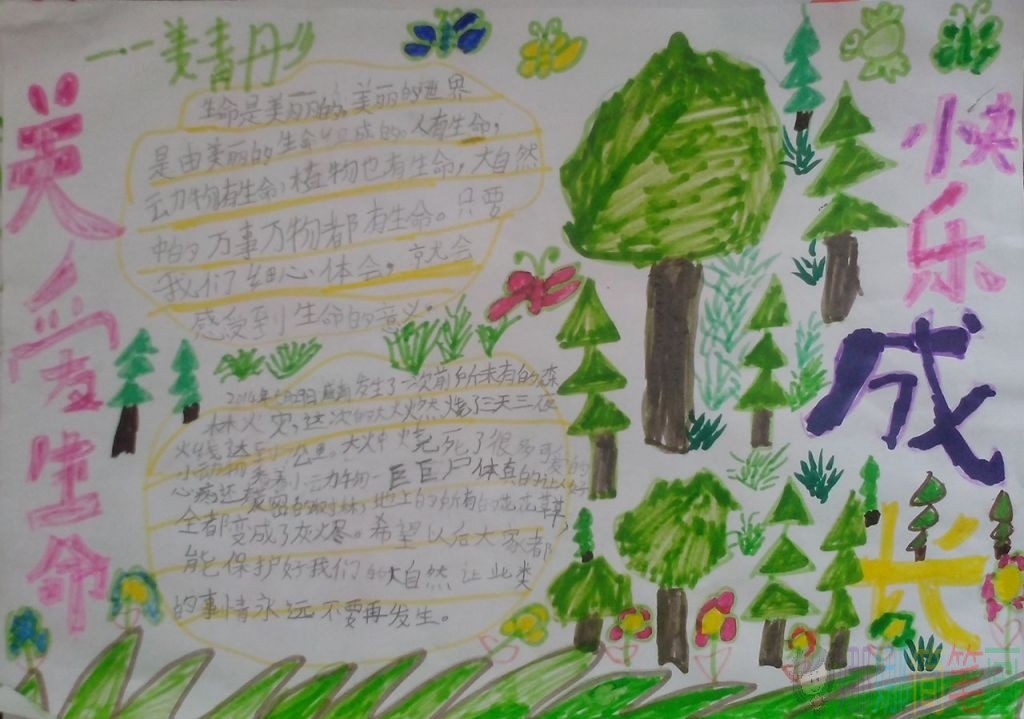 关爱生命
快乐成长
——姜青丹
生命是美丽的,美丽的世界
是由美丽的生命组成的。人有生命,
动物有生命,植物也有生命,大自然
中的万事万物都有生命。只要
我们细心体会,就会
感受到生命的意义。
发生了一次前所未有的森
林火灾,这次的大火燃烧了三天三夜
火线达到 公里。大火中烧死了很多可爱的
小动物 看着小动物一 尸体真的让人好
心疼还 地上的所有的 花草,
全都变成了灰烬。希望以后大家都
能保护好我们的大自然 让此类
的事情永远不要再发生。